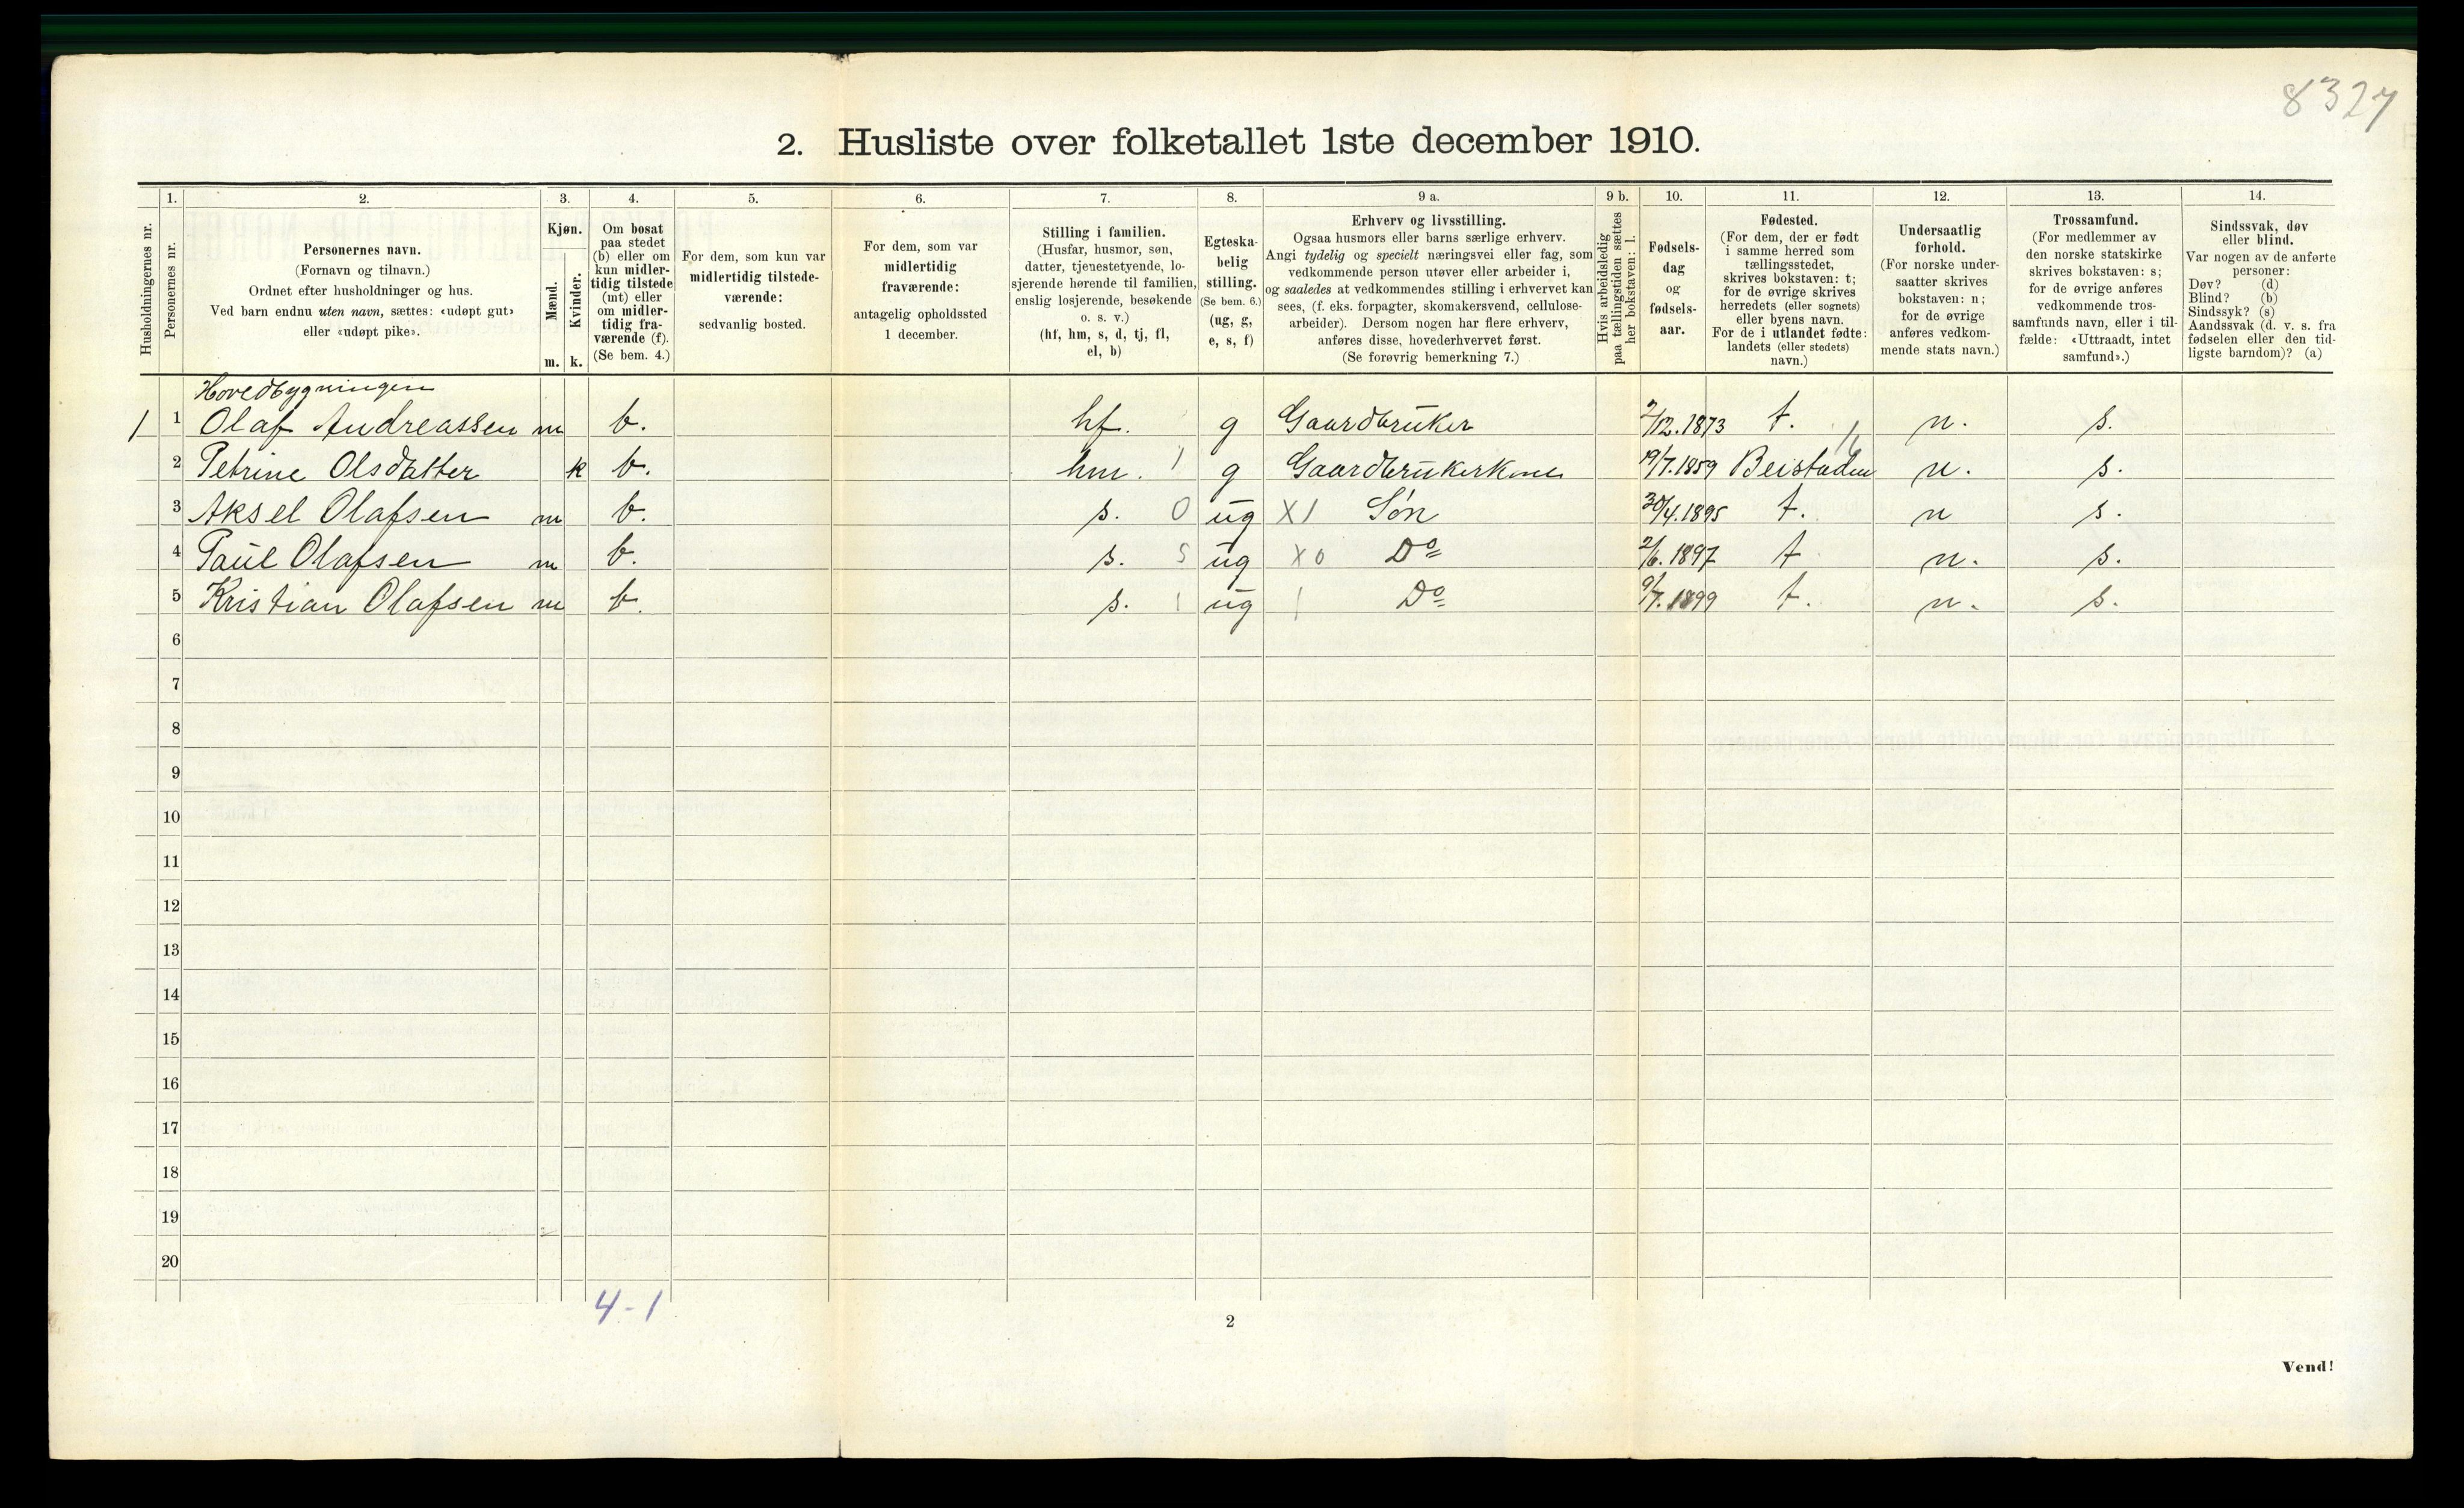 8327
2. Husliste over folketallet 1ste december 1910.
1. 2. 3. 4. 5. 6. 7. 8. 9 a. 9 b. 10. 11. 12. 13. 14.
Husholdningernes nr.
Personernes nr.
Personernes navn.
(Fornavn og tilnavn.)
Ordnet efter husholdninger og hus.
Ved barn endnu uten navn, sættes: «udøpt gut»
eller «udøpt pike».
Kjøn.
Mænd.
Kvinder.
m. k.
Om bosat
paa stedet
(b) eller om
kun midler-
tidig tilstede
(mt) eller
om midler-
tidig fra-
værende (f).
(Se bem. 4.)
For dem, som kun var
midlertidig tilstede-
værende:
sedvanlig bosted.
For dem, som var
midlertidig
fraværende:
antagelig opholdssted
1 december.
Stilling i familien.
(Husfar, husmor, søn,
datter, tjenestetyende, lo-
sjerende hørende til familien,
enslig losjerende, besøkende
o. s. v.)
(hf, hm, s, d, tj, fl,
el, b)
Egteska-
belig
stilling.
(Se bem. 6.)
(ug, g,
e, s, f)
Erhverv og livsstilling.
Ogsaa husmors eller barns særlige erhverv.
Angi tydelig og specielt næringsvei eller fag, som
vedkommende person utøver eller arbeider i,
og saaledes at vedkommendes stilling i erhvervet kan
sees, (f. eks. forpagter, skomakersvend, cellulose-
arbeider). Dersom nogen har flere erhverv,
anføres disse, hovederhvervet først.
(Se forøvrig bemerkning 7.)
Hvis arbeidsledig
paa tællingstiden sættes
her bokstaven: l.
Fødsels-
dag
og
fødsels-
aar.
Fødested.
(For dem, der er født
i samme herred som
tællingsstedet,
skrives bokstaven: t;
for de øvrige skrives
herredets (eller sognets)
eller byens navn.
For de i utlandet fødte:
landets (eller stedets)
navn.)
Undersaatlig
forhold.
(For norske under-
saatter skrives
bokstaven: n;
for de øvrige
anføres vedkom-
mende stats navn.)
Trossamfund.
(For medlemmer av
den norske statskirke
skrives bokstaven: s;
for de øvrige anføres
vedkommende tros-
samfunds navn, eller i til-
fælde: «Uttraadt, intet
samfund».)
Sindssvak, døv
eller blind.
Var nogen av de anførte
personer:
Døv? (d)
Blind? (b)
Sindssyk? (s)
Aandssvak (d. v. s. fra
fødselen eller den tid-
ligste barndom)? (a)
Hovedbygningen
1 1 Olaf Andreassen m b. hf. g Gaardbruker 2/12.1873 t. n. s.
2 Petrine Olsdatter k b. hm. 1 g Gaardbrukerkone 19/7.1859 Beistaden n. s.
3 Aksel Olafsen m b. s. 0 ug X1 Søn 30/4.1895 t. n s.
4 Paul Olafsen m b. s. 5 ug X0 Do 2/6.1897 t n. s.
5 Kristian Olafsen m b. s. 1 ug 1 Do 9/7.1899 t. n. s.
6
7
8
9
10
11
12
13
14
15
16
17
18
19
20
4-1
2
Vend!